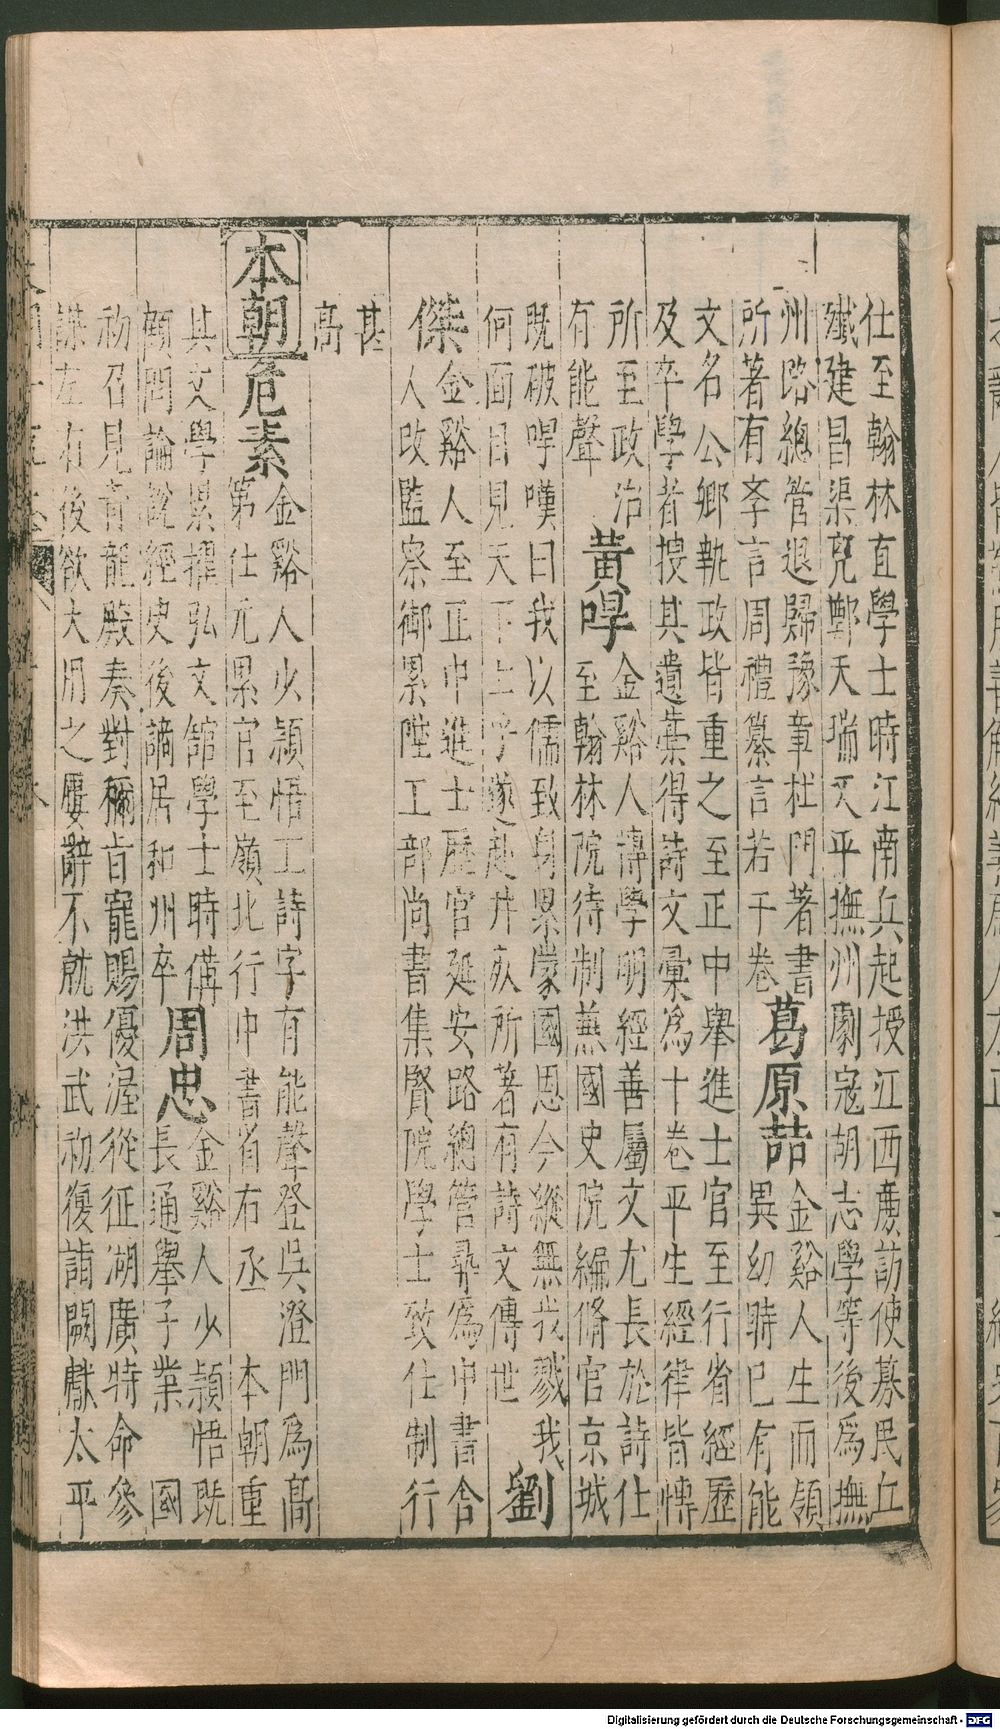 仕至翰林直學士時江南兵起授江西廉訪使募民丘
殲建昌渠兇鄭天瑞又平撫州劇寇胡志學等後爲撫
州路總管退歸豫章杜門著書
所著有孝言周禮纂言若干卷
葛原喆
金谿人生而領
異幼時已有能
文名公卿執政皆重之至正中舉進士官至行省經歷
及卒學者搜其遺藁得詩文彙爲十卷平生經律皆慱
所至政治
有能聲
黃哻
金谿人博學明經善屬文尤長於詩仕
至翰林院待制兼國史院編脩官京城
旣破哻嘆曰我以儒致身累蒙國恩今縱無我戮我
何面目見天下士乎遂赴井死所著有詩文傳世
劉
傑
金谿人至正中進士歷官延安路總管尋爲中書舍
人改監察御累陞工部尚書集賢院學士致仕制行
甚
高
本朝
危素
金谿人少穎悟工詩字有能聲登吳澄門爲高
第仕元累官至嶺北行中書省右丞 本朝重
其文學累擢弘文館學士時備
顧問論說經史後謫居和州卒
周忠
金谿人少穎悟既
長通舉子業 國
初召見青龍殿奏對稱旨寵賜優渥從征湖廣特命參
謀左右後欲大用之屢辭不就洪武初復詣闕獻太平
Digitalisierung gefördert durch die Deutsche Forschungsgemeinschaft - DFG